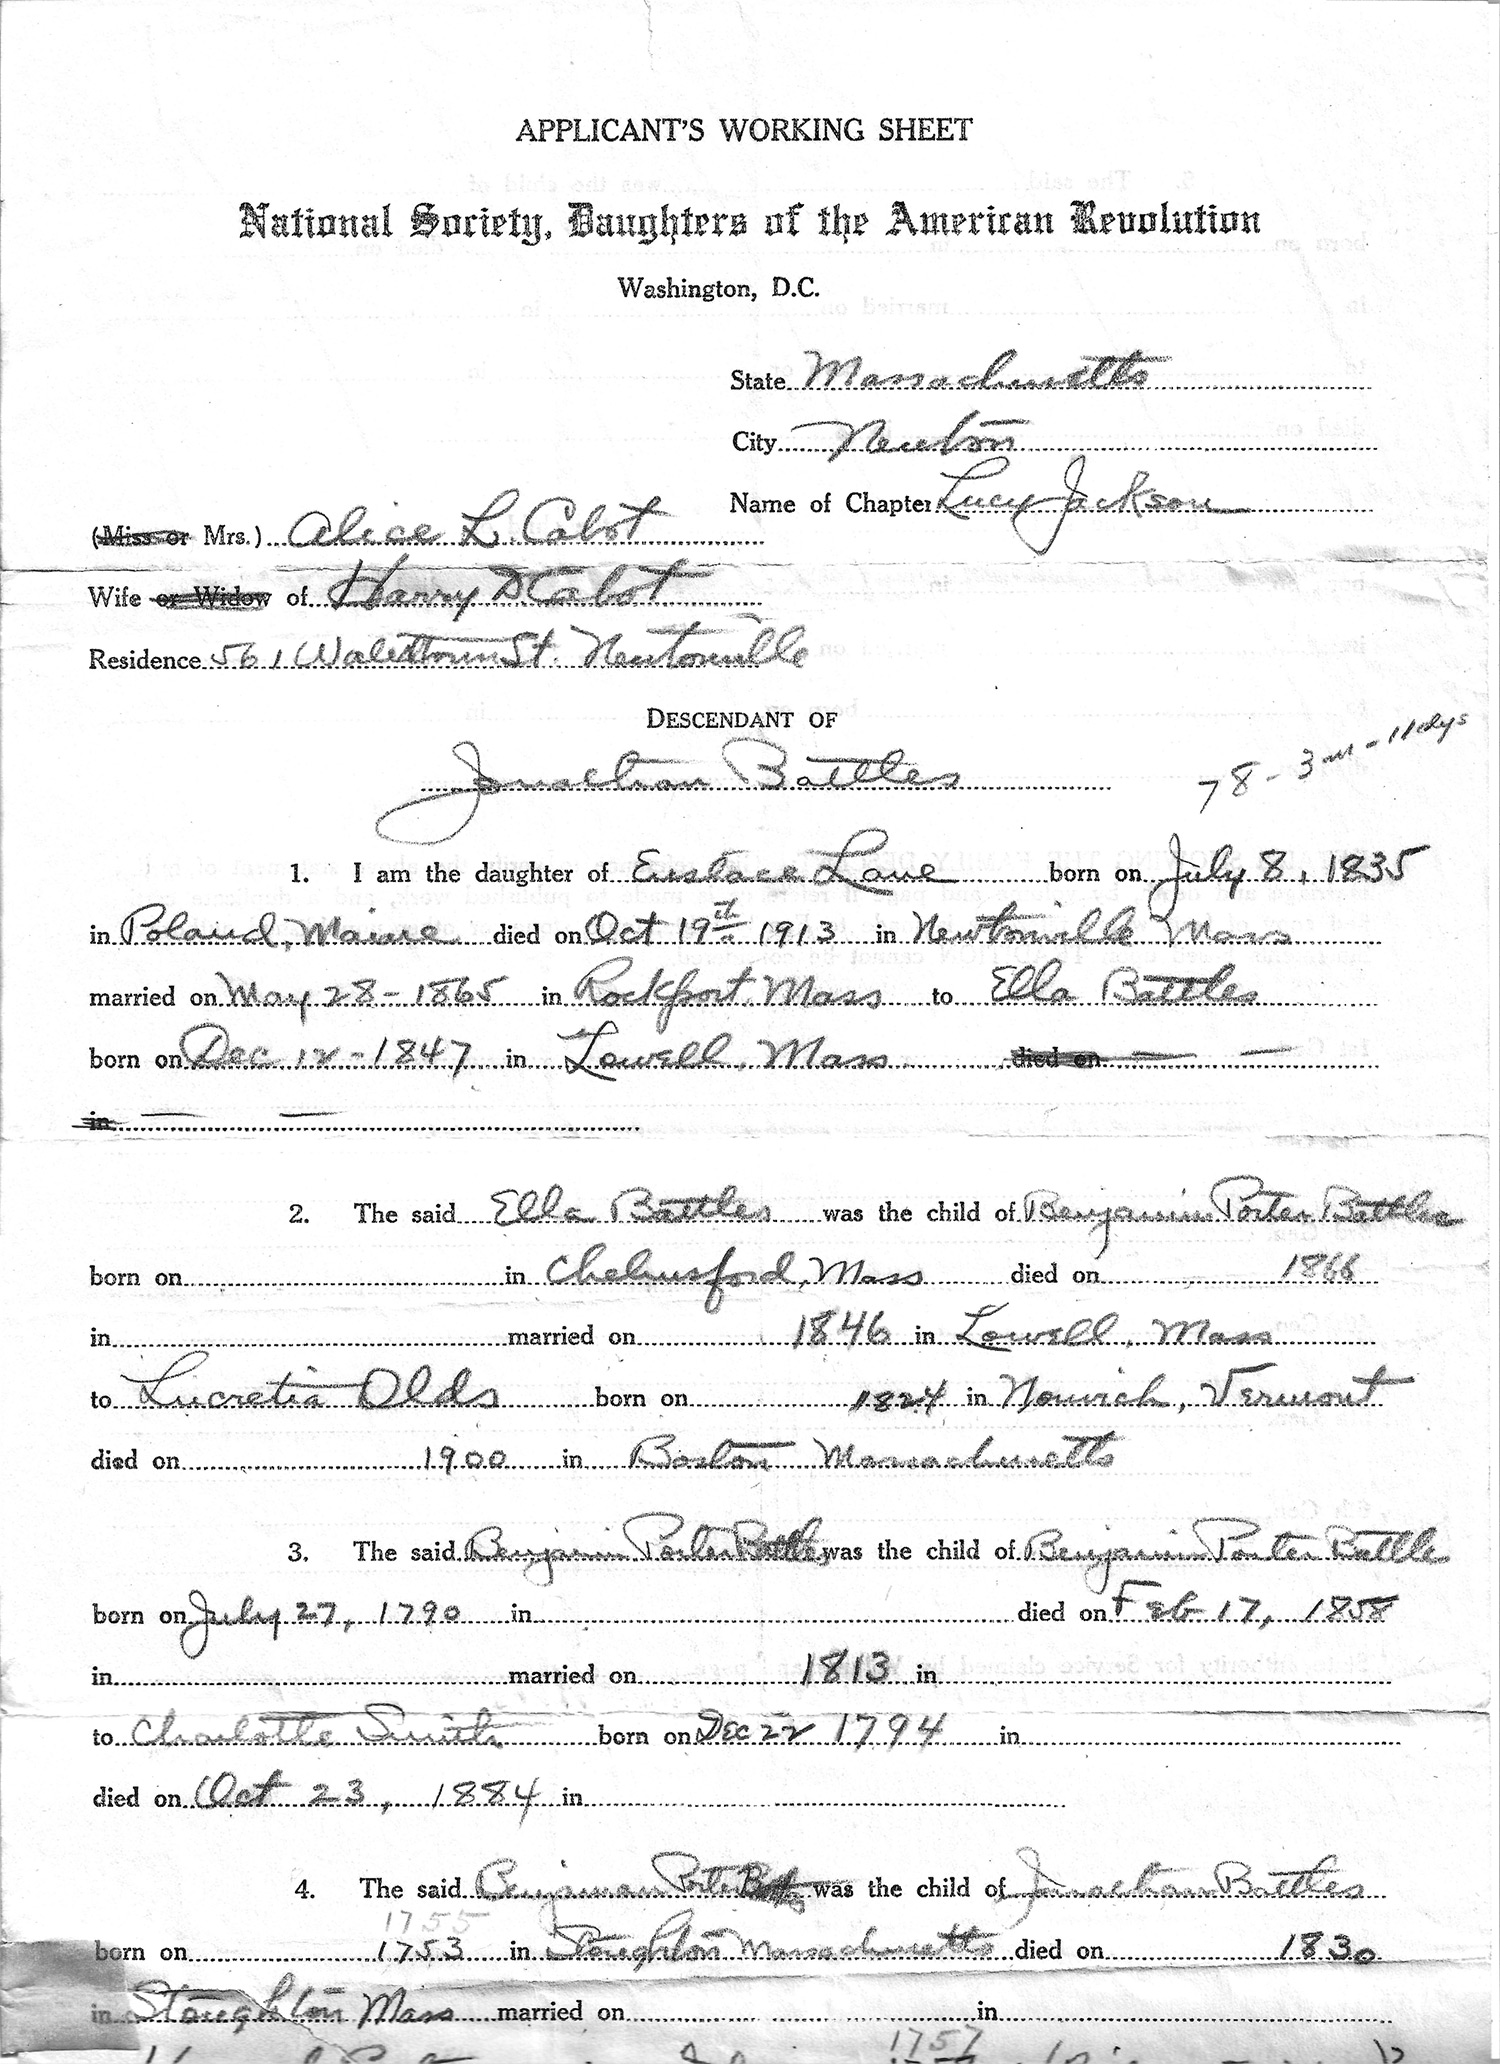 APPLICANT'S WORKING SHEET
National Society, Daughters of the American Revolution
Washington, D.C.
State Massachusetts
City Newton
Name of Chapter Lucy Jackson
(Miss or Mrs.) Alice L. Cabot
Wife or Widow of Harry D Cabot
Residence 561 Watertown St. Newtonville
DESCENDANT OF
Jonathan Battles
78 - 3 - 11 dys
1. I am the daughter of Eustace Lane born on July 8, 1835
in Poland, Maine died on Oct 19th 1913 in Newtonville Mass
married on May 28 - 1865 in Rockport, Mass to Ella Battles
born on Dec 12 - 1847 in Lowell, Mass died on — —
in — —
2. The said Ella Battles was the child of Benjamin Porter Battles
born on in Chelmsford, Mass died on 1866
in married on 1846 in Lowell, Mass
to Lucretia Olds born on 1824 in Norwich, Vermont
died on 1900 in Boston Massachusetts
3. The said Benjamin Porter Battles was the child of Benjamin Porter Battles
born on July 27, 1790 in died on Feb 17, 1858
in married on 1813 in
to Charlotte Smith born on Dec 22 1794 in
died on Oct 23, 1884 in
4. The said Benjaman Porter Battles was the child of Jonathan Battles
1755
born on 1753 in Stoughton Massachusetts died on 1830
in Stoughton Mass married on in
1757